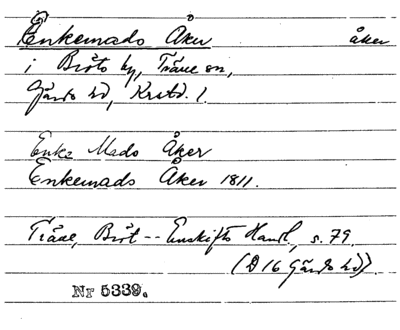 Enkemads Åker åker
i Bröts by, Träne sn,
Gärds hd, Krstd. l.
Enke Mads Åker
Enkemads Åker 1811.
Träne, Bröt -- Enskifts Handl, s. 79.
(D 16 Gärds hd).
Nr 5339.